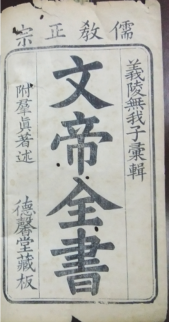 儒教正宗
義陵無我子彙輯
文帝全書
附羣真著述
德馨堂藏板